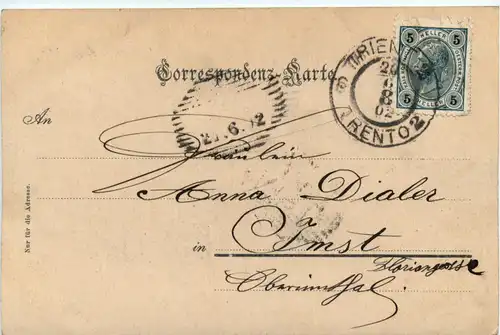 5 HELLER 5
Correspondenz-Karte.
TRIENT 2
6
02
TRENTO 2
6.02
An
Fräulein
Anna Dialer
in Imst
Floriangasse
Oberinnthal
Nur für die Adresse.
5 5